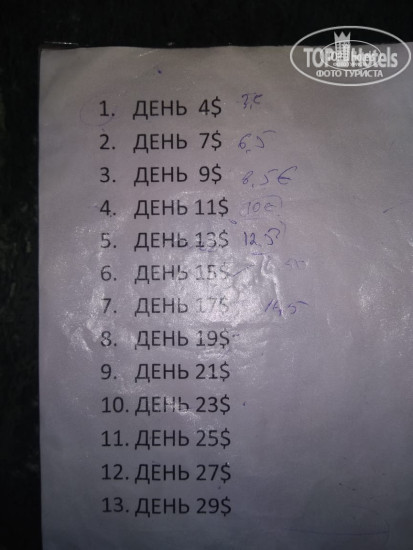 TOP Hotels
ФОТО ТУРИСТА
1. ДЕНЬ 4$
2. ДЕНЬ 7$ 6,5
3. ДЕНЬ 9$ 8,5€
4. ДЕНЬ 11$ 10€
5. ДЕНЬ 13$ 12,5
6. ДЕНЬ 15$
7. ДЕНЬ 17$
8. ДЕНЬ 19$
9. ДЕНЬ 21$
10. ДЕНЬ 23$
11. ДЕНЬ 25$
12. ДЕНЬ 27$
13. ДЕНЬ 29$